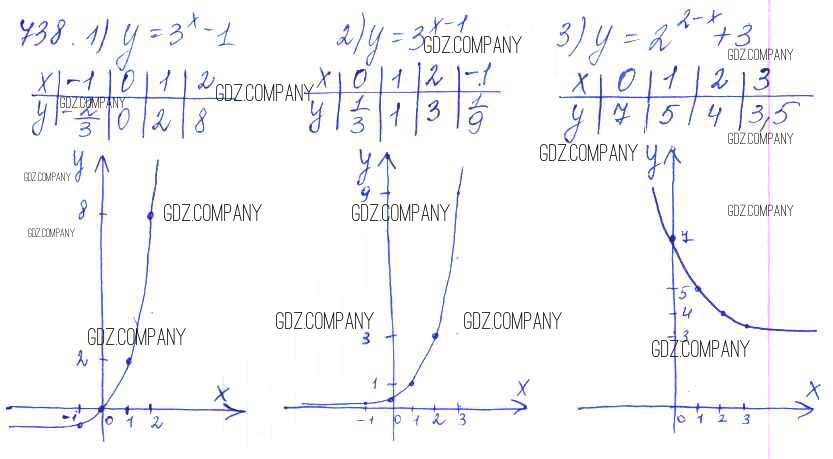 738. 1) y = 3^x - 1
x | -1 | 0 | 1 | 2
y | -2/3 | 0 | 2 | 8
2) y = 3^(x-1)
x | 0 | 1 | 2 | -1
y | 1/3 | 1 | 3 | 1/9
3) y = 2^(2-x) + 3
x | 0 | 1 | 2 | 3
y | 7 | 5 | 4 | 3,5
GDZ.COMPANY
GDZ.COMPANY
GDZ.COMPANY
GDZ.COMPANY
GDZ.COMPANY
GDZ.COMPANY
y
8
2
x
-1 0 1 2
GDZ.COMPANY
GDZ.COMPANY
GDZ.COMPANY
GDZ.COMPANY
y
9
3
1
x
-1 0 1 2 3
GDZ.COMPANY
GDZ.COMPANY
GDZ.COMPANY
y
7
5
4
3
x
0 1 2 3
GDZ.COMPANY
GDZ.COMPANY